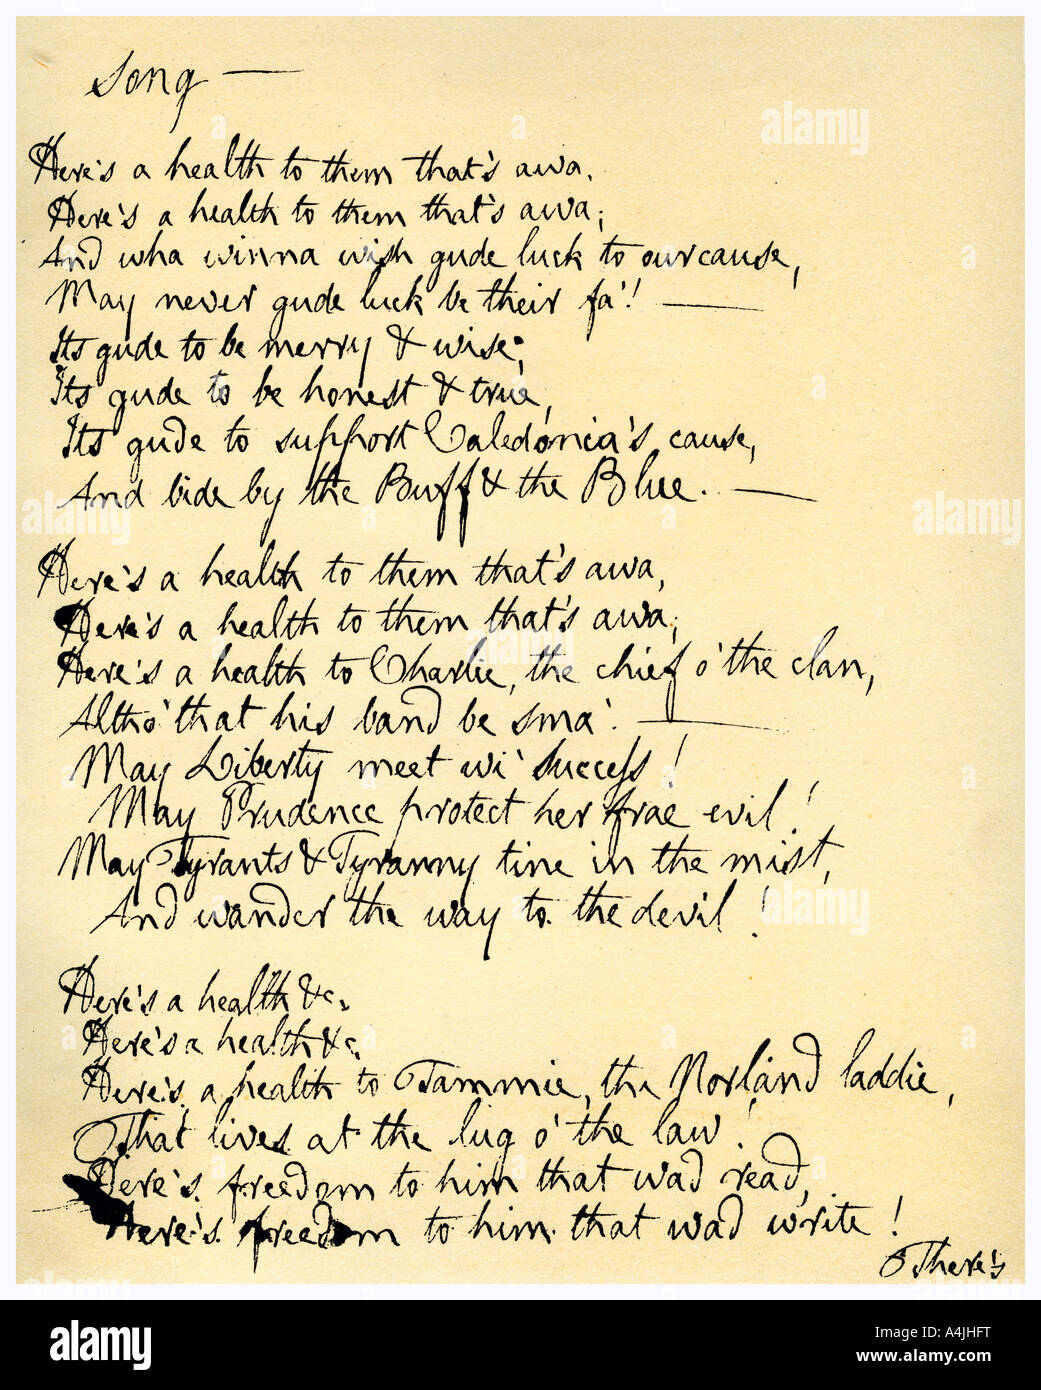 Song —
Here's a health to them that's awa,
Here's a health to them that's awa;
And wha winna wish gude luck to our cause,
May never gude luck be their fa'! —
Its gude to be merry & wise;
Its gude to be honest & true,
Its gude to support Caledonia's cause,
And bide by the Buff & the Blue. —
Here's a health to them that's awa,
Here's a health to them that's awa;
Here's a health to Charlie, the chief o' the clan,
Altho' that his band be sma'. —
May Liberty meet wi' success!
May Prudence protect her frae evil!
May Tyrants & Tyranny tine in the mist,
And wander the way to the devil!
Here's a health &c.
Here's a health &c.
Here's a health to Tammie, the Norland laddie,
That lives at the lug o' the law!
Here's freedom to him that wad read,
Here's freedom to him that wad write!
There's
alamy
Image ID: A4JHFT
www.alamy.com